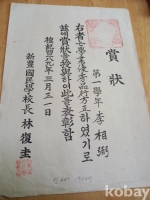 賞狀
第一學年 李相弼
右者는學業優秀品行方正하였기로
玆에賞狀을授與하여此를表彰함
檀紀四二八九年三月二一日
新豊國民學校長 林復圭
kobay